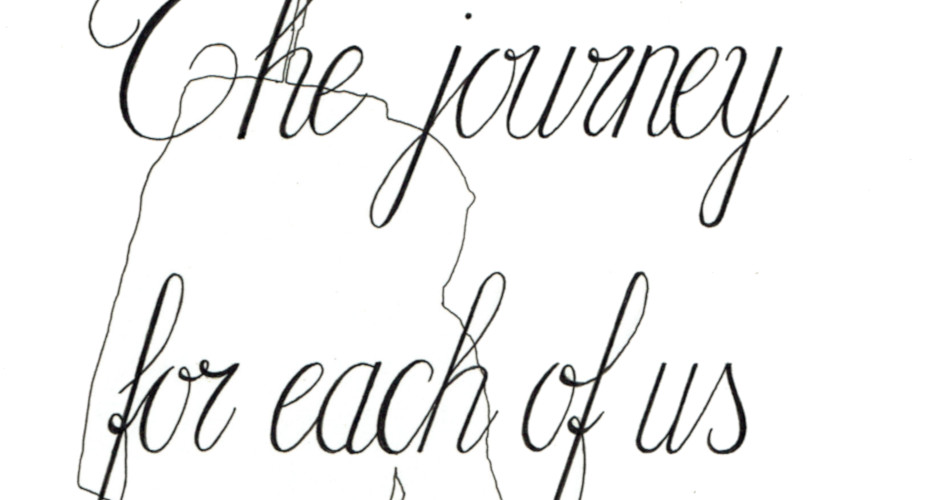 The journey
for each of us